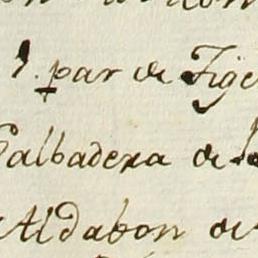 1. par de Tige
Palbadera de
Aldabon de